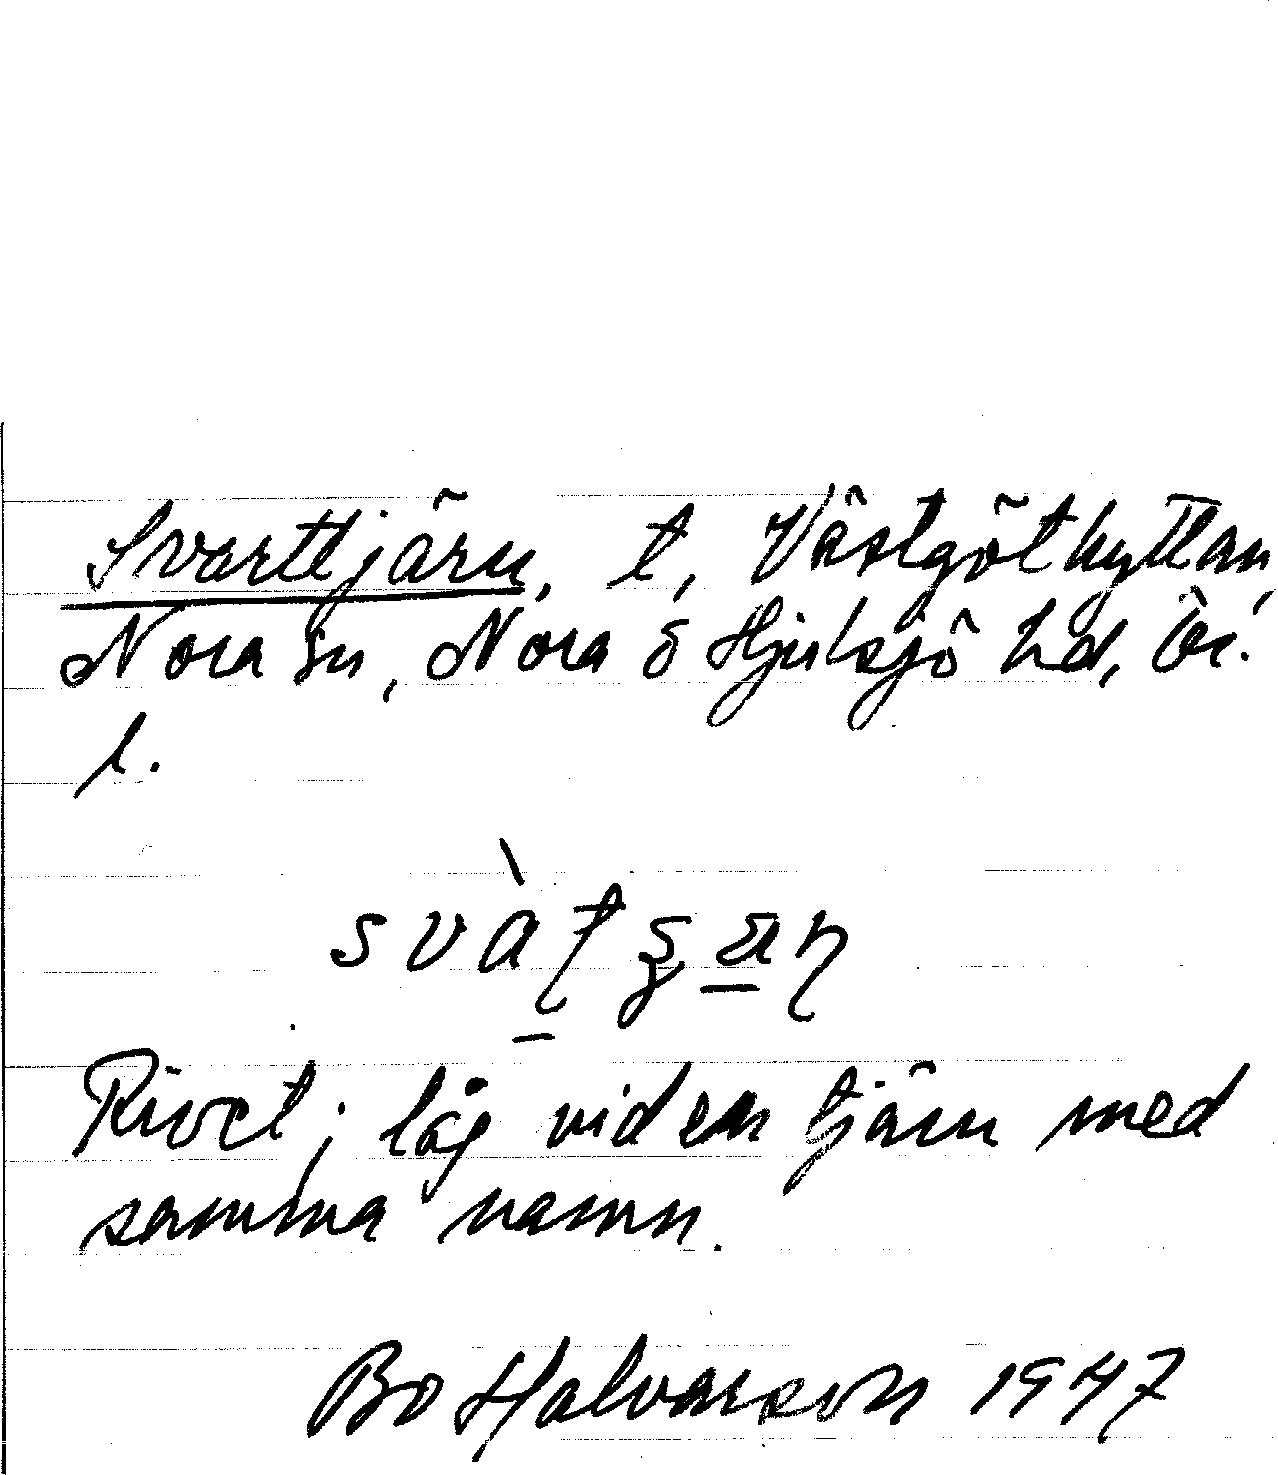 Svarttjärn, t, Västgöthyttan,
Nora sn, Nora o Hjulsjö hd, Ör.
l.
Rivet; låg vid en tjärn med
samma namn.
Bo Halvarson 1947